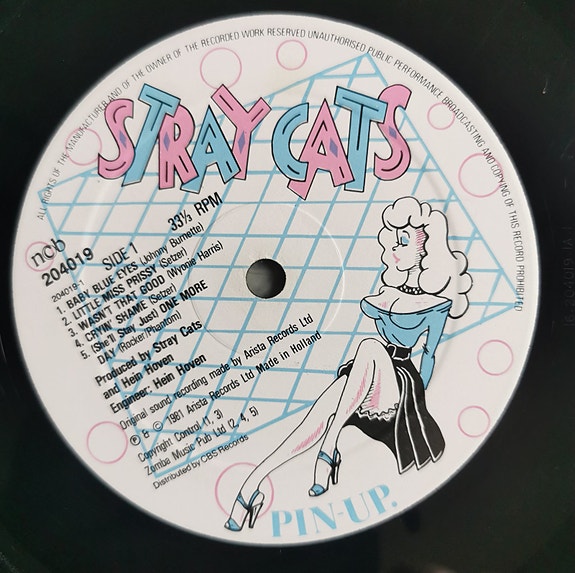 ALL RIGHTS OF THE MANUFACTURER AND OF THE OWNER OF THE RECORDED WORK RESERVED UNAUTHORISED PUBLIC PERFORMANCE BROADCASTING AND COPYING OF THIS RECORD PROHIBITED
STRAY CATS
ncb
204019
204019-1 SIDE 1 33⅓ RPM
1. BABY BLUE EYES (Johnny Burnette)
2. LITTLE MISS PRISSY (Setzer)
3. WASN'T THAT GOOD (Wyonie Harris)
4. CRYIN' SHAME (Setzer)
5. (She'll Stay Just) ONE MORE
DAY (Rocker/Phantom)
Produced by Stray Cats
and Hein Hoven
Engineer: Hein Hoven
Original sound recording made by Arista Records Ltd
℗ & © 1981 Arista Records Ltd Made in Holland
Copyright Control (1, 3)
Zomba Music Pub Ltd (2, 4, 5)
Distributed by CBS Records
PIN-UP.